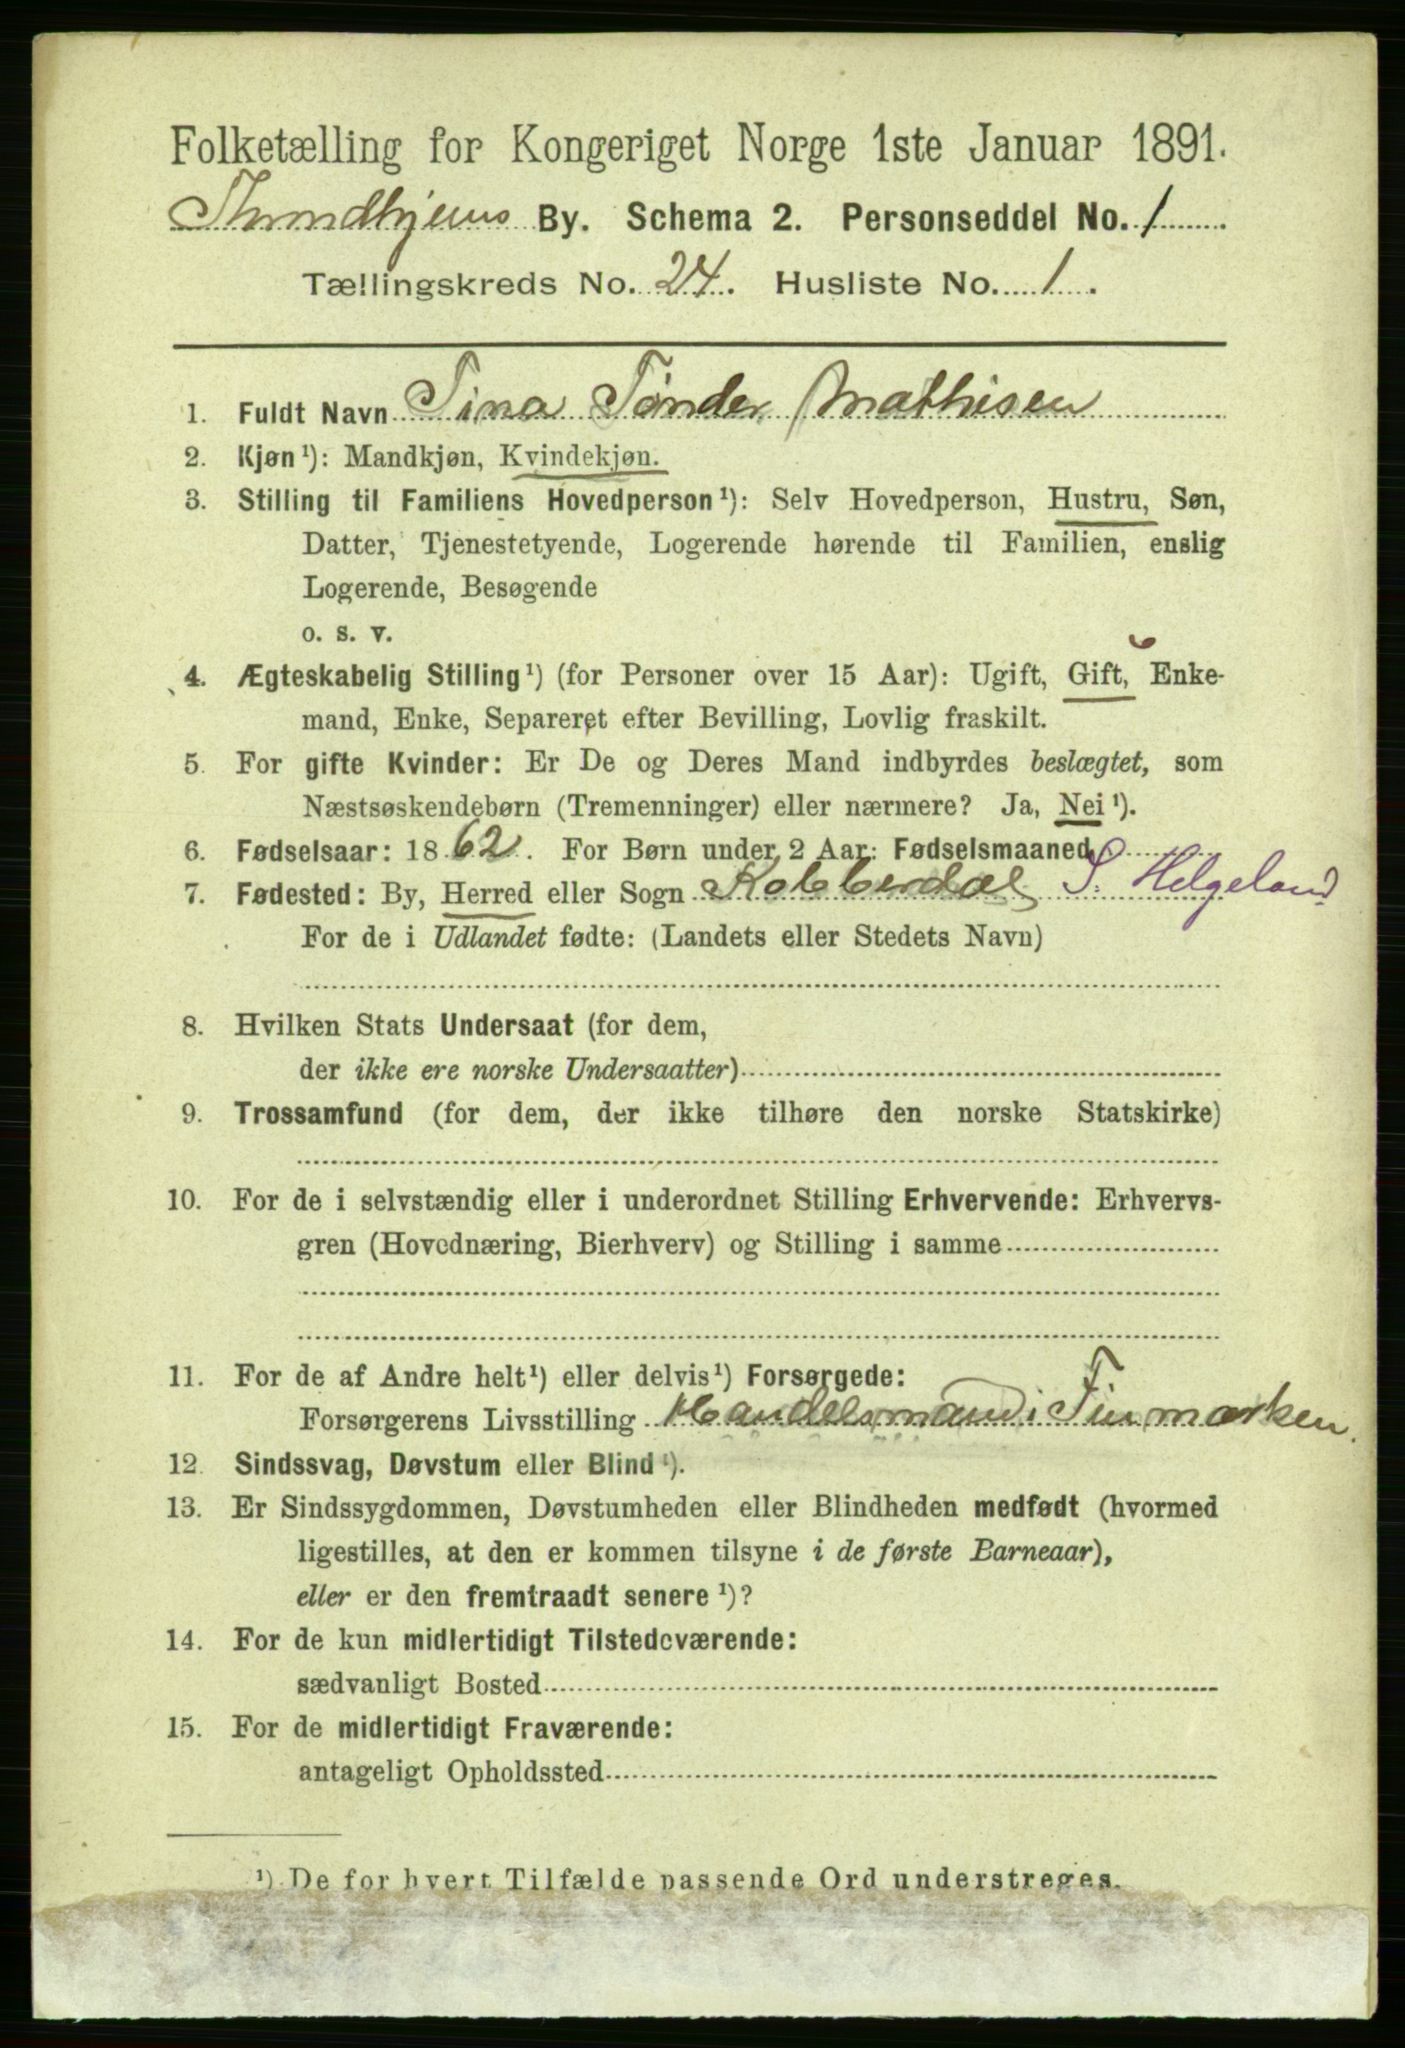 Folketælling for Kongeriget Norge 1ste Januar 1891.
Throndhjems By. Schema 2. Personseddel No. 1
Tællingskreds No. 24. Husliste No. 1.
1. Fuldt Navn Tina Tønder Mathisen
2. Kjøn ¹): Mandkjøn, Kvindekjøn.
3. Stilling til Familiens Hovedperson ¹): Selv Hovedperson, Hustru, Søn,
Datter, Tjenestetyende, Logerende hørende til Familien, enslig
Logerende, Besøgende
o. s. v.
4. Ægteskabelig Stilling ¹) (for Personer over 15 Aar): Ugift, Gift, Enke-
mand, Enke, Separeret efter Bevilling, Lovlig fraskilt.
5. For gifte Kvinder: Er De og Deres Mand indbyrdes beslægtet, som
Næstsøskendebørn (Tremenninger) eller nærmere? Ja, Nei ¹).
6. Fødselsaar: 1862. For Børn under 2 Aar: Fødselsmaaned
7. Fødested: By, Herred eller Sogn Kobberdal S. Helgeland
For de i Udlandet fødte: (Landets eller Stedets Navn)
8. Hvilken Stats Undersaat (for dem,
der ikke ere norske Undersaatter)
9. Trossamfund (for dem, der ikke tilhøre den norske Statskirke)
10. For de i selvstændig eller i underordnet Stilling Erhvervende: Erhvervs-
gren (Hovednæring, Bierhverv) og Stilling i samme
11. For de af Andre helt ¹) eller delvis ¹) Forsørgede:
Forsørgerens Livsstilling Handelsmand i Finmarken.
12. Sindssvag, Døvstum eller Blind ¹).
13. Er Sindssygdommen, Døvstumheden eller Blindheden medfødt (hvormed
ligestilles, at den er kommen tilsyne i de første Barneaar),
eller er den fremtraadt senere ¹)?
14. For de kun midlertidigt Tilstedeværende:
sædvanligt Bosted
15. For de midlertidigt Fraværende:
antageligt Opholdssted
¹) De for hvert Tilfælde passende Ord understreges.